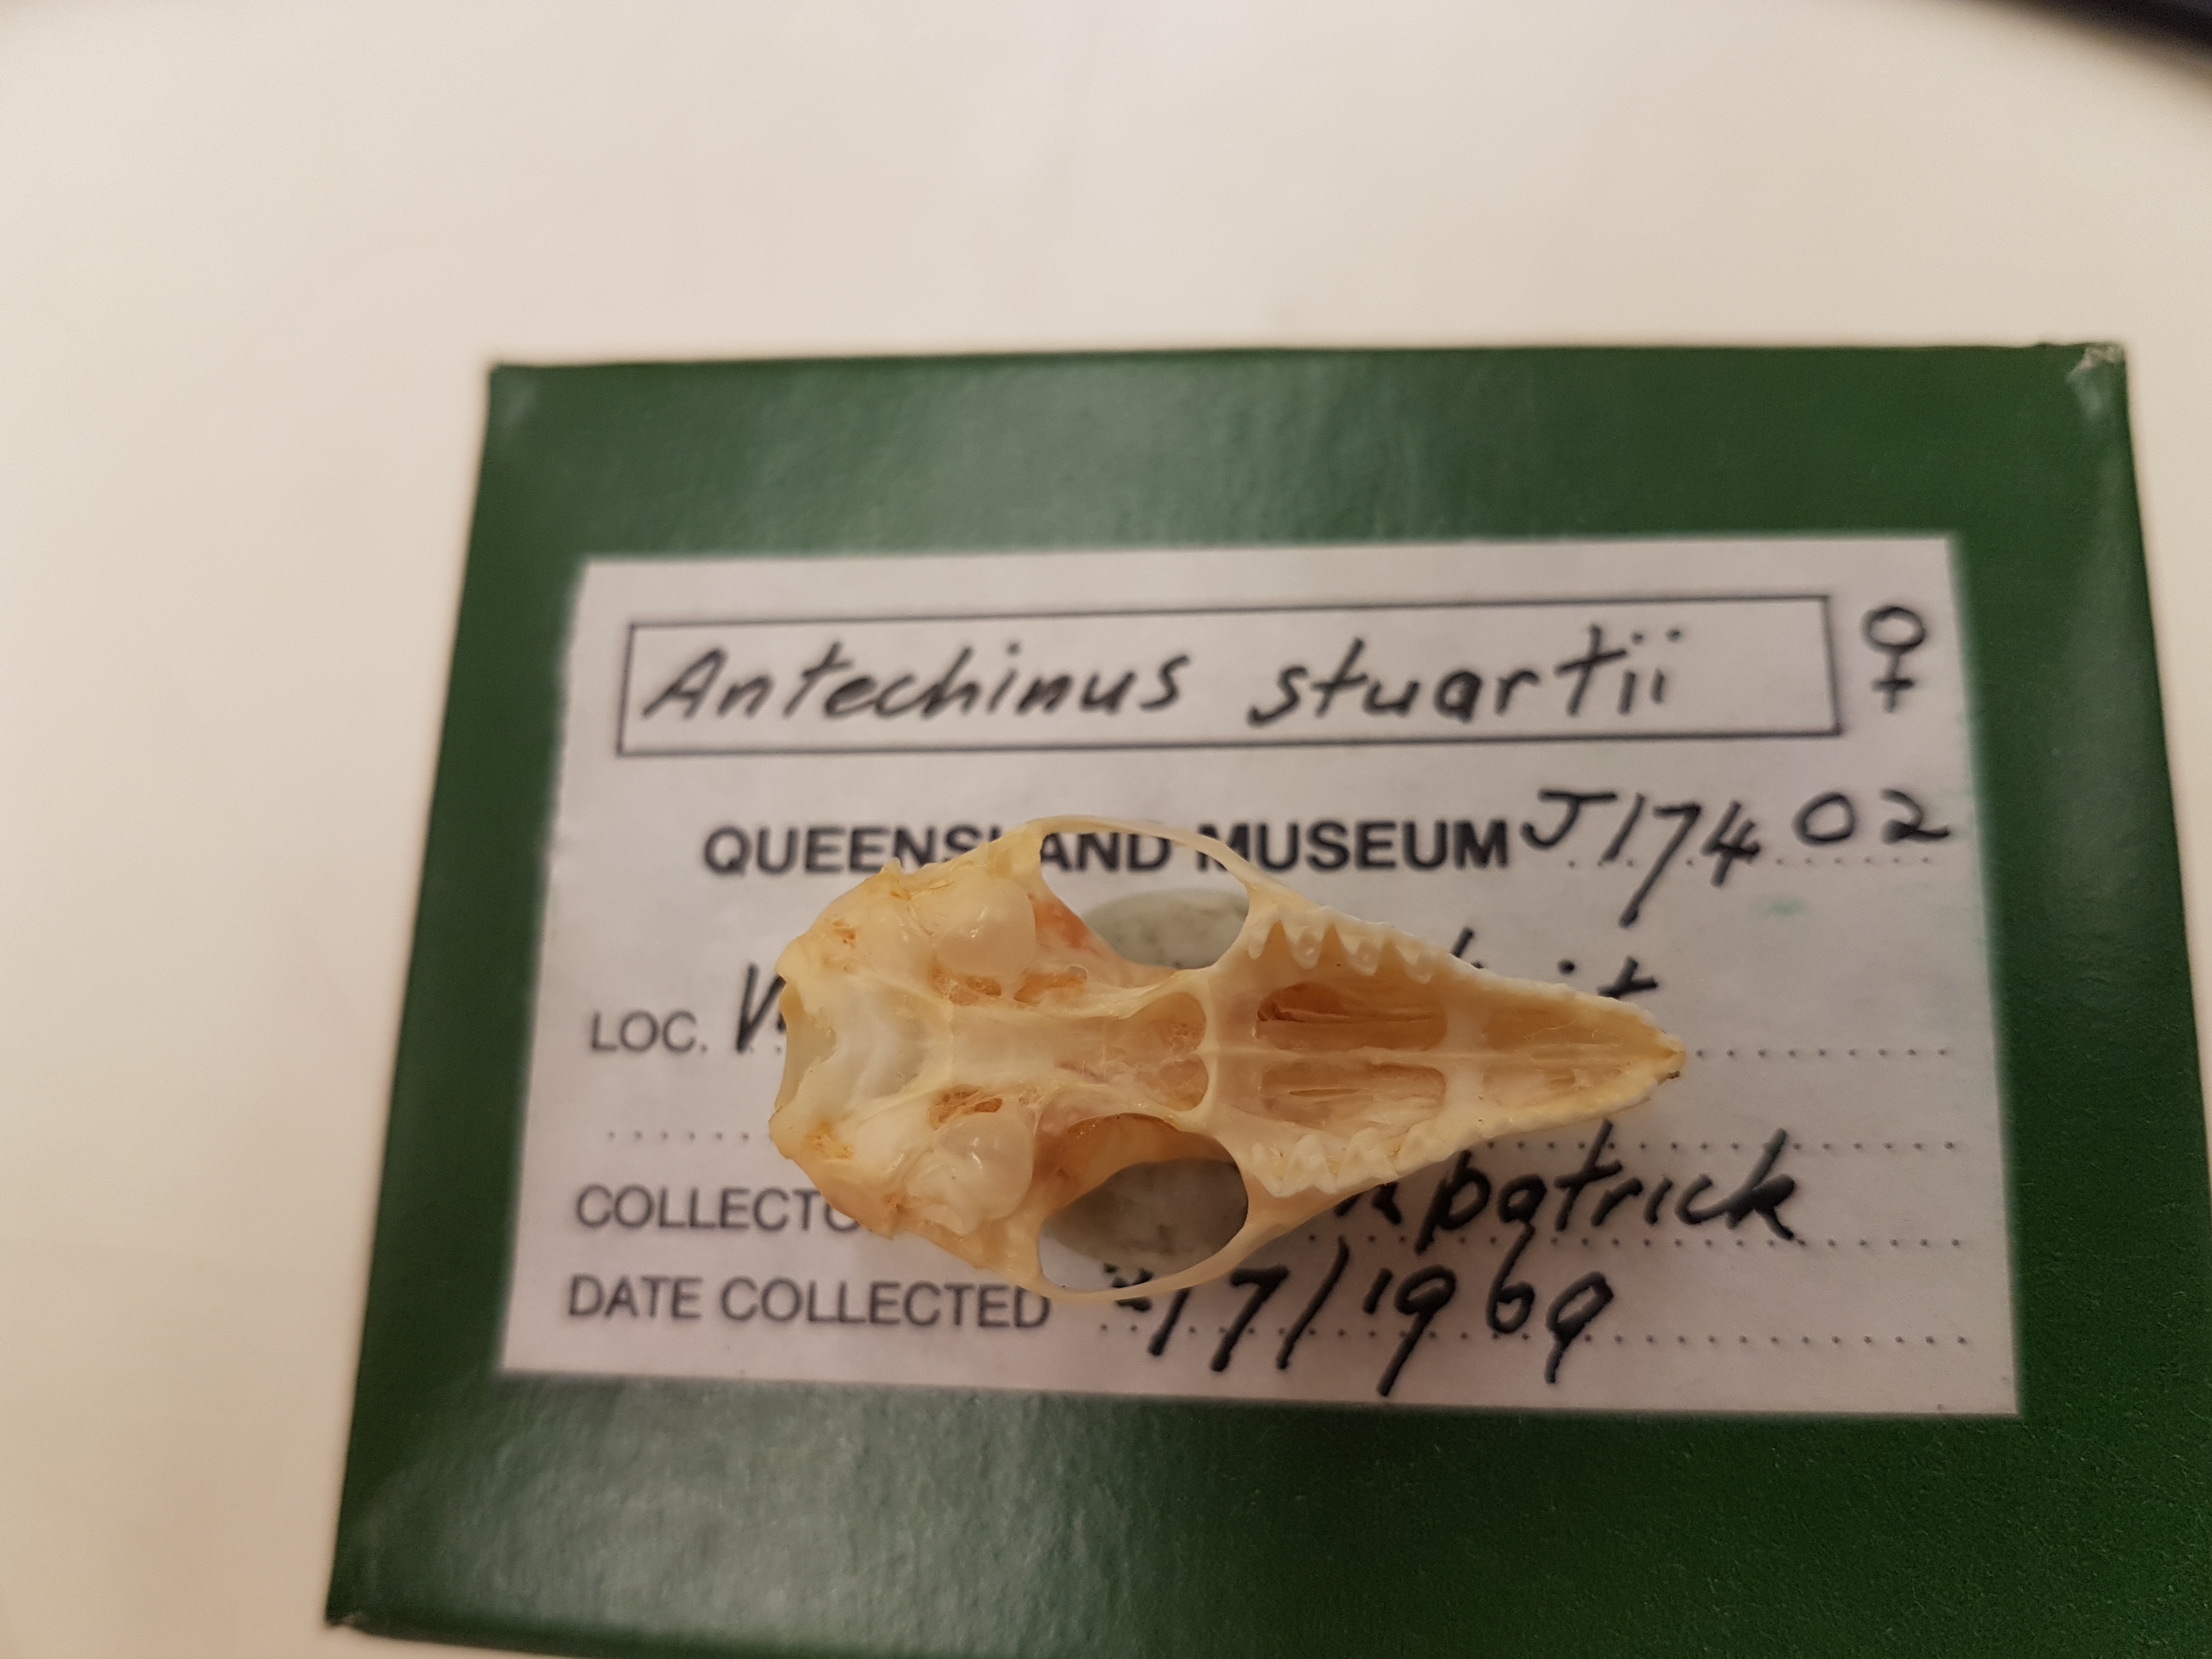 Antechinus stuartii ♀
QUEENSLAND MUSEUM J17402
LOC.
COLLECTO
DATE COLLECTED /7/1969